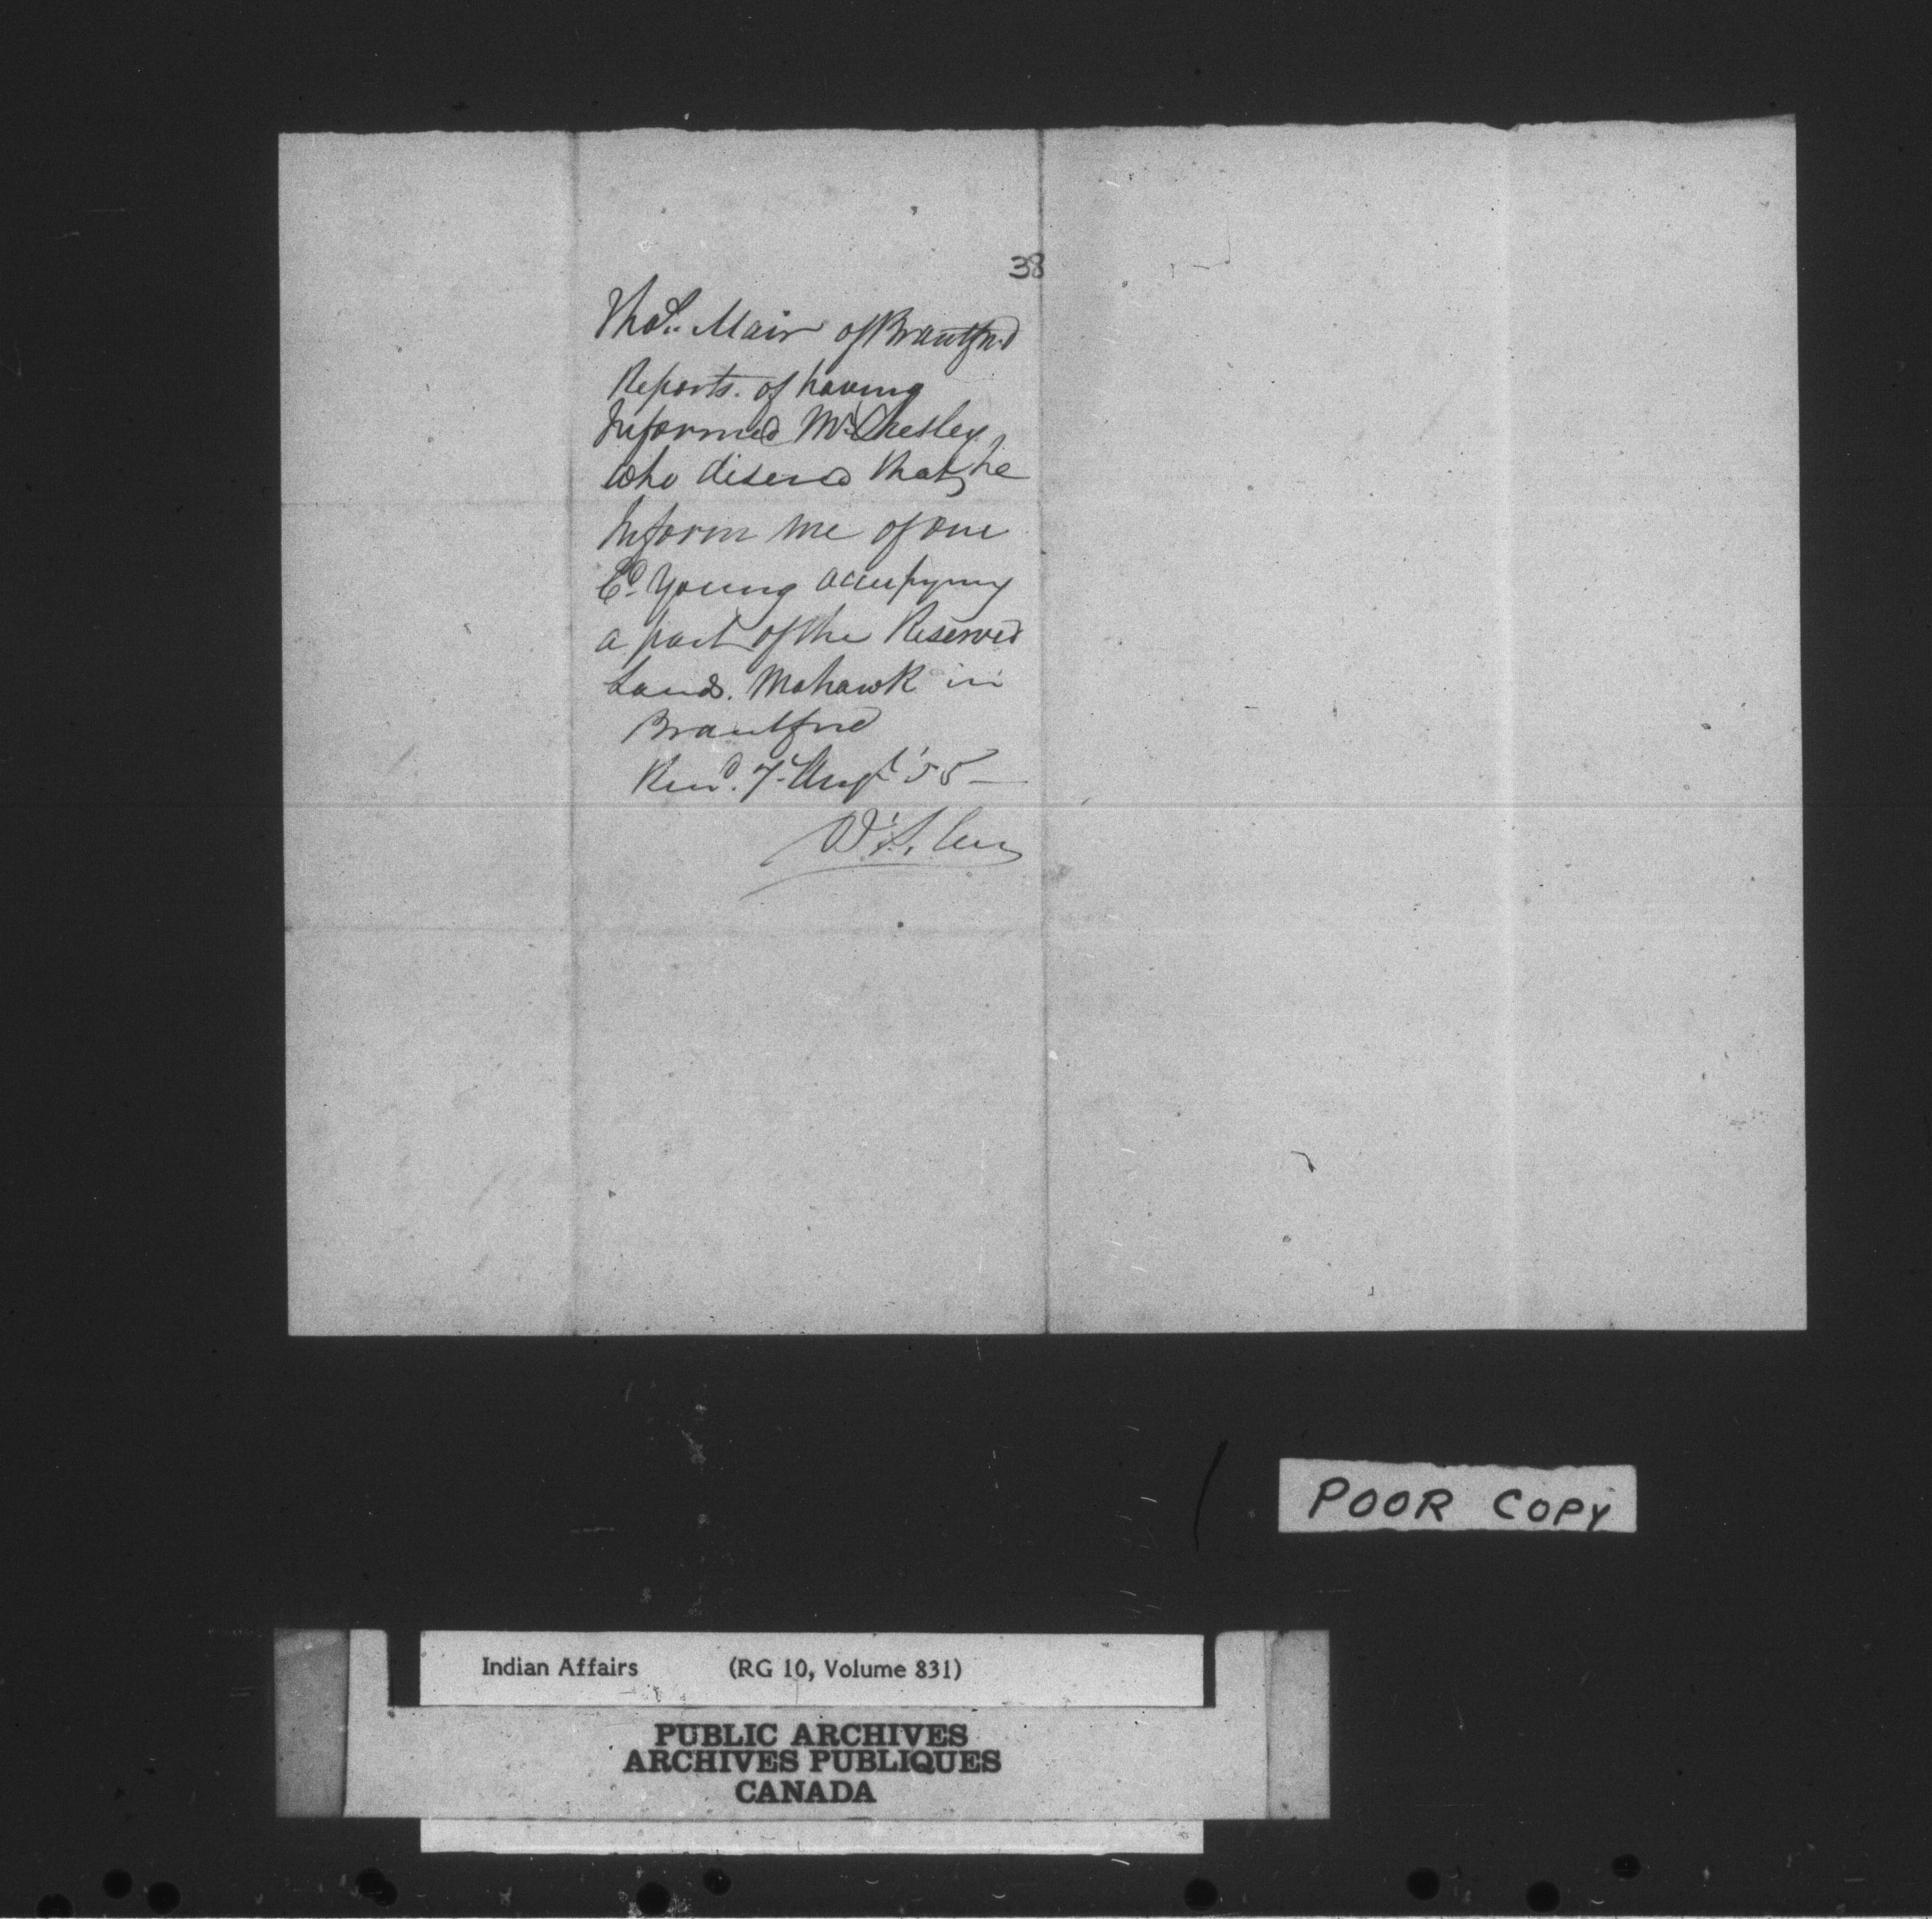 38
Thos. Mair of Brantford
Reports. of having
Informed Mr Chesley
who disered that he
Inform me of one
Ed. Young occupying
a part of the Reserved
Lands. Mohawk in
Brantford
7 Augt '55
POOR COPY
Indian Affairs (RG 10, Volume 831)
PUBLIC ARCHIVES
ARCHIVES PUBLIQUES
CANADA